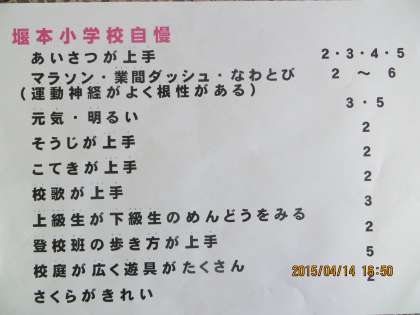 堰本小学校自慢
あいさつが上手 2・3・4・5
マラソン・業間ダッシュ・なわとび 2 ～ 6
(運動神経がよく根性がある)
元気・明るい 3・5
そうじが上手 2
こてきが上手 2
校歌が上手 2
上級生が下級生のめんどうをみる 3
登校班の歩き方が上手 2
校庭が広く遊具がたくさん 5
さくらがきれい 2
2015/04/14 16:50